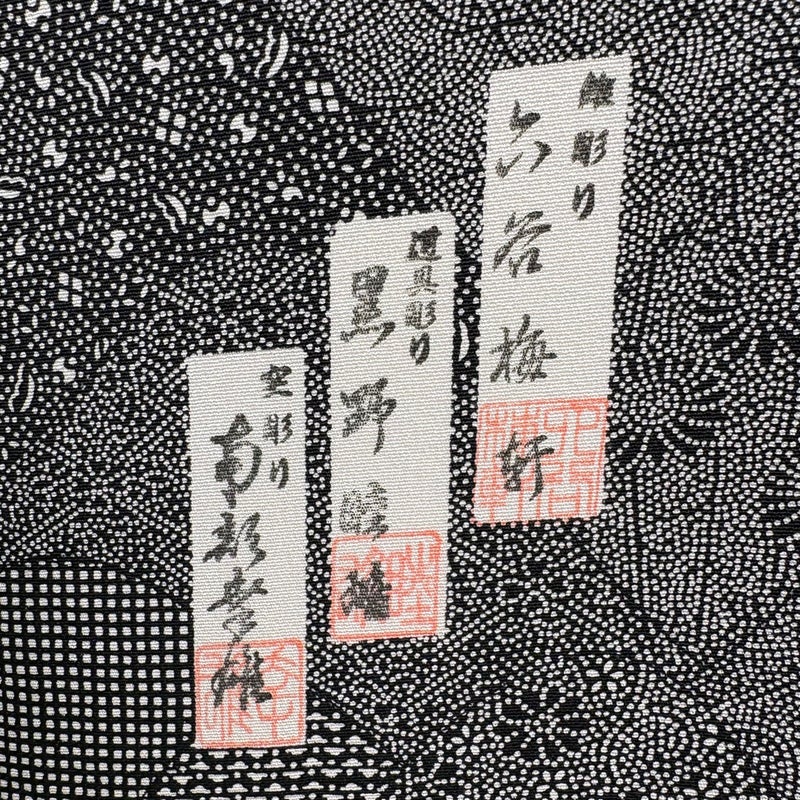 錐彫り
六谷梅軒
道具彫り
黒野睦
突彫り
南部